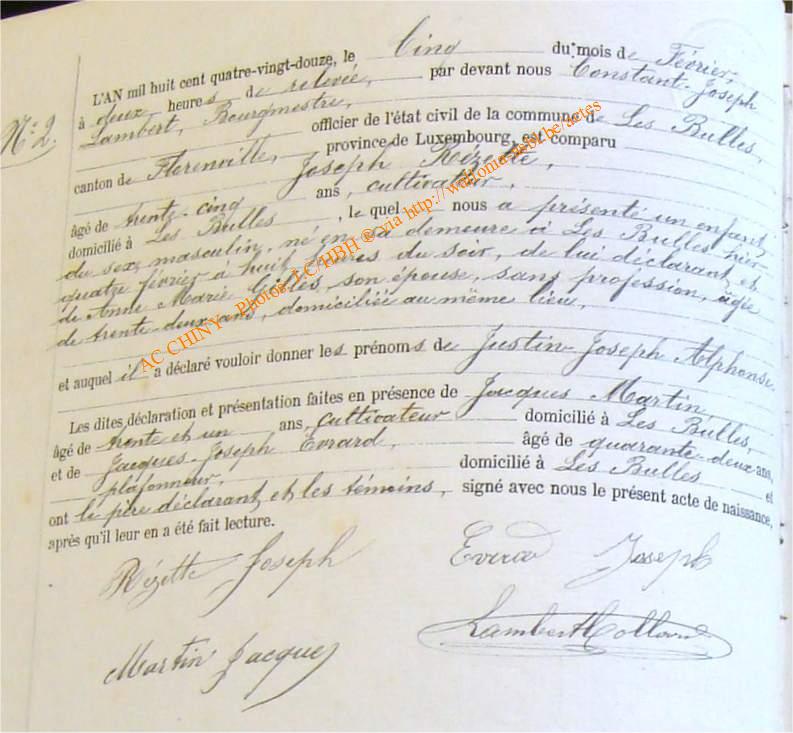 N° 2.
L'AN mil huit cent quatre-vingt-douze, le Cinq du mois de Février,
à deux heures de relevée, par devant nous Constant-Joseph
Lambert, Bourgmestre, officier de l'état civil de la commune de Les Bulles,
canton de Florenville, province de Luxembourg, est comparu
Joseph Rézette,
âgé de trente-cinq ans, cultivateur,
domicilié à Les Bulles, le quel nous a présenté un enfant
du sexe masculin, né en sa demeure à Les Bulles hier
quatre février à huit heures du soir, de lui déclarant et
de Anne Marie Gilles, son épouse, sans profession, âgée
de trente-deux ans, domiciliée au même lieu,
et auquel il a déclaré vouloir donner les prénoms de Justin-Joseph Alphonse.
Les dites déclaration et présentation faites en présence de Jacques Martin,
âgé de trente et un ans, cultivateur domicilié à Les Bulles,
et de Jacques-Joseph Evrard, âgé de quarante-deux ans,
plafonneur, domicilié à Les Bulles et
ont le père déclarant et les témoins, signé avec nous le présent acte de naissance,
après qu'il leur en a été fait lecture.
Rézette Joseph
Joseph
Martin Jacques
Lambert
AC CHINY - Photos LC/HBH ® via http://wallonia-asbl.be/actes